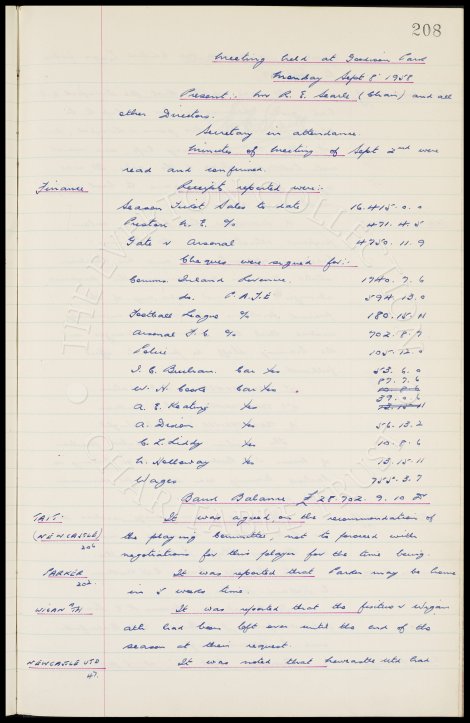 208
Meeting held at Goodison Park
Monday Sept 8th 1958
Present:- Mr R. E. Searle (Chair) and all
other Directors.
Secretary in attendance.
Minutes of Meeting of Sept 2nd were
read and confirmed.
Finance Receipts reported were:-
Season Ticket Sales to date 16,415. 0. 0
Preston N. E. % 471. 4. 5
Gate v Arsenal 4750. 11. 9
Cheques were signed for:-
Comms. Inland Revenue. 1740. 7. 6
do. P.A.Y.E 594. 13. 0
Football League % 180. 15. 11
Arsenal F. C. % 702. 8. 9
Police 105. 12. 0
Car Exs 53. 6. 0
W. H. Cooke Car Exs 87. 7. 6
A. E. Keating Exs 39. 0. 6
A. Dixon Exs 56. 13. 2
C. L. Liddy Exs 10. 8. 6
H. Holloway Exs 13. 15. 11
Wages 755. 3. 7
Bank Balance £28,702. 9. 10
TAIT It was agreed, on the recommendation of
(NEWCASTLE) the playing Committee, not to proceed with
206 negotiations for this player for the time being.
PARKER It was reported that Parker may be home
202 in 2 weeks time.
WIGAN ATH It was reported that the fixture v Wigan
Ath had been left over until the end of the
season at their request.
NEWCASTLE UTD It was noted that Newcastle Utd had
47.
THE EVERTON COLLECTION
CHARITABLE TRUST